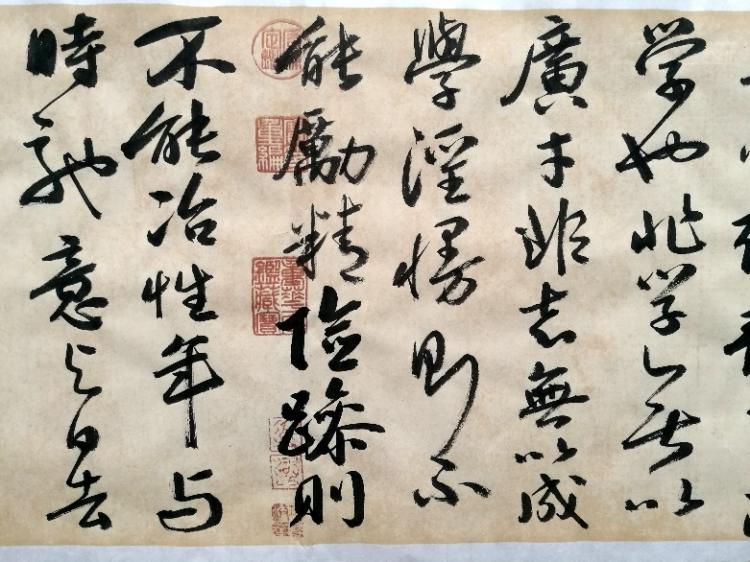 学也非学無以
廣才非志無以成
學淫慢則不
能勵精險躁則
不能冶性年与
時馳意与日去